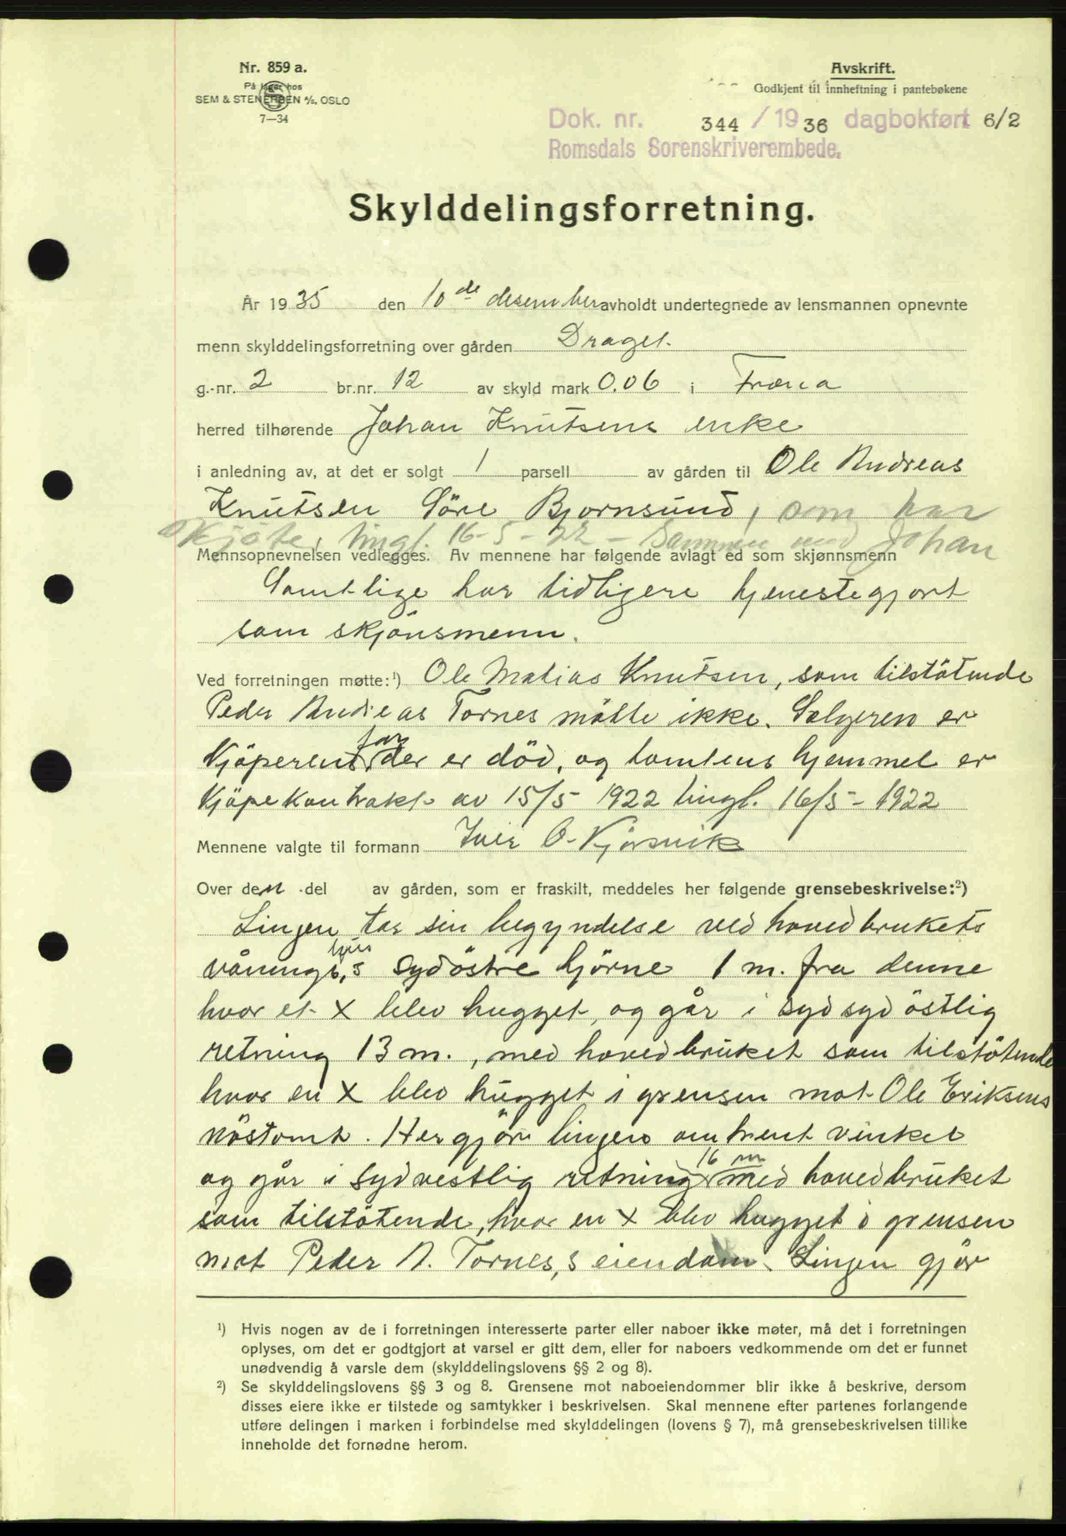 Nr. 859 a.
På lager hos
SEM & STENERSEN A/S, OSLO
7—34
Avskrift.
Godkjent til innheftning i pantebøkene
Dok. nr. 344 / 1936 dagbokført 6/2
Romsdals Sorenskriverembede.
Skylddelingsforretning.
År 1935 den 10de desember avholdt undertegnede av lensmannen opnevnte
menn skylddelingsforretning over gården Draget
g.-nr. 2 br.nr. 12 av skyld mark 0.06 i Fræna
herred tilhørende Johan Knutsens enke
i anledning av, at det er solgt 1 parsell av gården til Ole Andreas
Knutsen Söre Bjornsund, som har
Skjöte, tingl. 16-5-22 - Sammen med Johan
Mennsopnevnelsen vedlegges. Av mennene har følgende avlagt ed som skjønnsmenn
Samtlige har tidligere tjenestegjort
som skjönsmenn.
Ved forretningen møtte:¹) Ole Matias Knutsen, som tilstötende
Peder Andreas Tornes mötte ikke. Selgeren er
Kjöperens far der er död, og tomtens hjemmel er
Kjöpekontrakt av 15/5 - 1922 tingl. 16/5 - 1922
Mennene valgte til formann Iver O. Kjörsvik
Over den del av gården, som er fraskilt, meddeles her følgende grensebeskrivelse:²)
Linjen tar sin begyndelse ved hovedbrukets
våningshus,s sydöstre hjörne 1 m. fra denne
hvor et X blev hugget, og går i sydsydöstlig
retning 13 m., med hovedbruket som tilstötende
hvor en X blev hugget i grensen mot Ole Eriksens
nöstomt. Her gjör linjen omtrent vinkel
og går i sydvestlig retning 16 m med hovedbruket
som tilstötende, hvor en X blev hugget i grensen
mot Peder A. Tornes,s eiendom. Linjen gjör
¹) Hvis nogen av de i forretningen interesserte parter eller naboer ikke møter, må det i forretningen
oplyses, om det er godtgjort at varsel er gitt dem, eller for naboers vedkommende om det er funnet
unødvendig å varsle dem (skylddelingslovens §§ 2 og 8).
²) Se skylddelingslovens §§ 3 og 8. Grensene mot naboeiendommer blir ikke å beskrive, dersom
disses eiere ikke er tilstede og samtykker i beskrivelsen. Skal mennene efter partenes forlangende
utføre delingen i marken i forbindelse med skylddelingen (lovens § 7), må grensebeskrivelsen tillike
inneholde det fornødne herom.